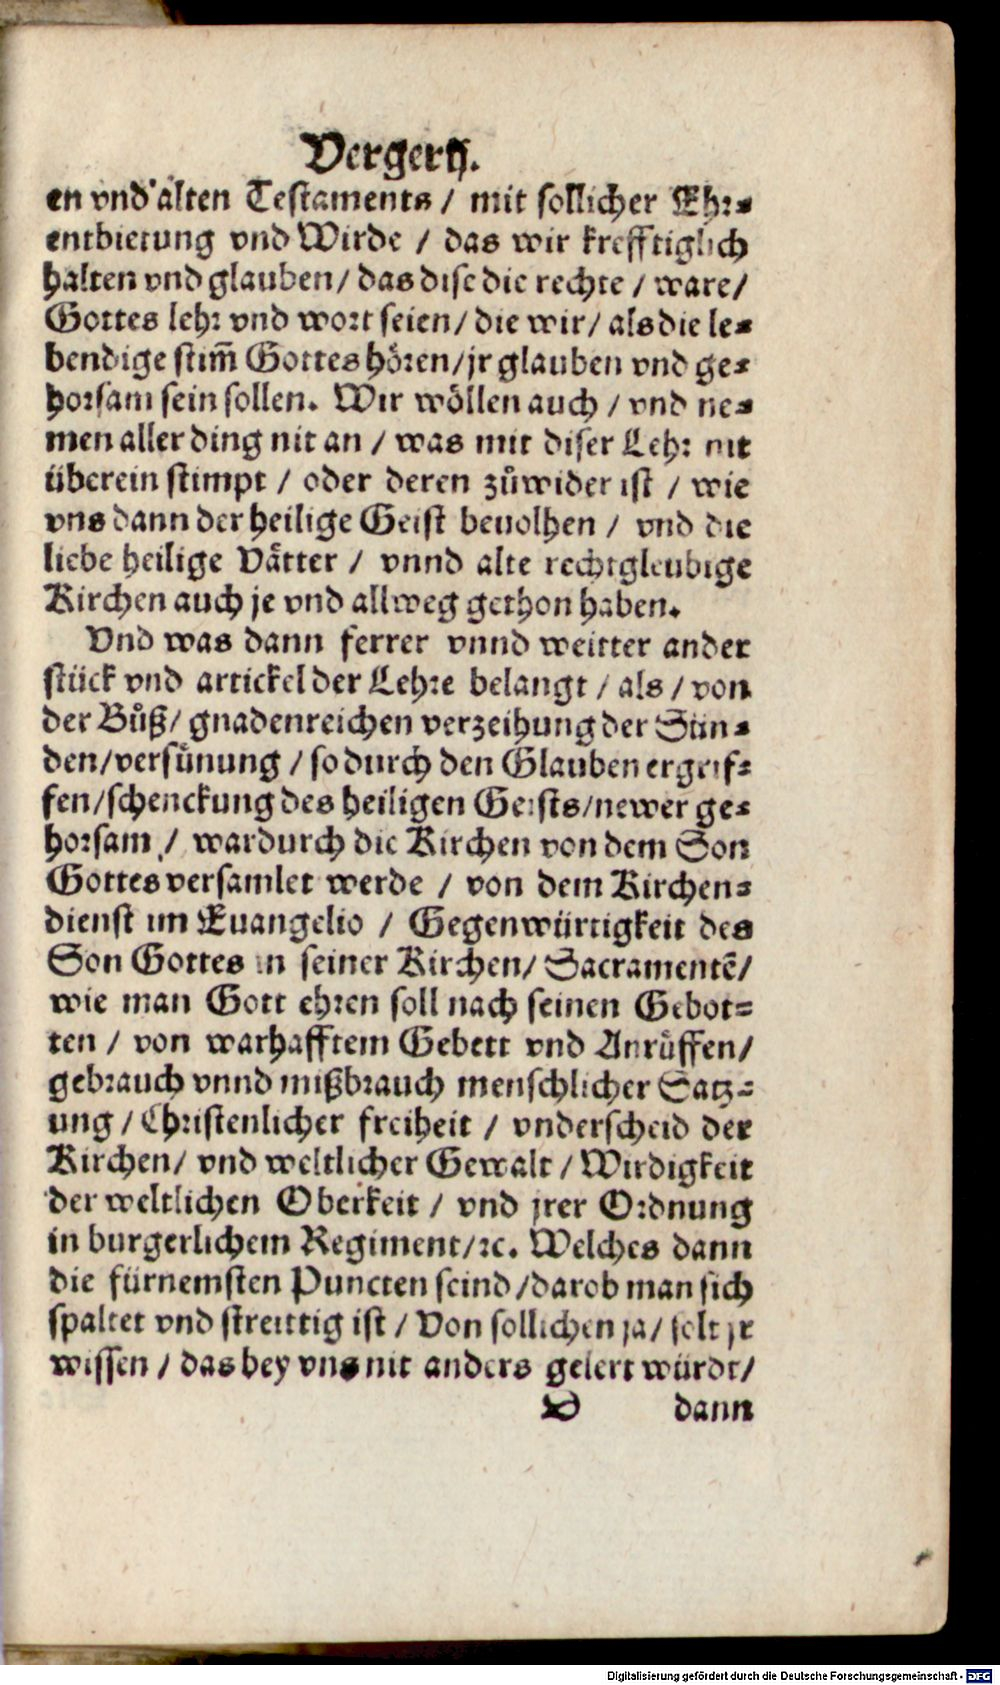 Vergerij.
en vnd alten Testaments / mit sollicher Ehr-
entbietung vnd Wirde / das wir krefftiglich
halten vnd glauben / das dise die rechte / ware /
Gottes lehr vnd wort seien / die wir / als die le-
bendige stim̃ Gottes hören / jr glauben vnd ge-
horsam sein sollen. Wir wöllen auch / vnd ne-
men aller ding nit an / was mit diser Lehr nit
überein stimpt / oder deren zůwider ist / wie
vns dann der heilige Geist beuolhen / vnd die
liebe heilige Vätter / vnnd alte rechtgleubige
Kirchen auch je vnd allweg gethon haben.
Vnd was dann ferrer vnnd weitter ander
stück vnd artickel der Lehre belangt / als / von
der Bůß / gnadenreichen verzeihung der Sün-
den / versünung / so durch den Glauben ergrif-
fen / schenckung des heiligen Geists / newer ge-
horsam / wardurch die Kirchen von dem Son
Gottes versamlet werde / von dem Kirchen-
dienst im Euangelio / Gegenwürtigkeit des
Son Gottes in seiner Kirchen / Sacramentẽ /
wie man Gott ehren soll nach seinen Gebot-
ten / von warhafftem Gebett vnd Anrüffen /
gebrauch vnnd mißbrauch menschlicher Satz-
ung / Christenlicher freiheit / vnderscheid der
Kirchen / vnd weltlicher Gewalt / Wirdigkeit
der weltlichen Oberkeit / vnd jrer Ordnung
in burgerlichem Regiment / ꝛc. Welches dann
die fürnemsten Puncten seind / darob man sich
spaltet vnd streittig ist / Von sollichen ja / solt jr
wissen / das bey vns nit anders gelert würdt /
D dann
Digitalisierung gefördert durch die Deutsche Forschungsgemeinschaft - DFG